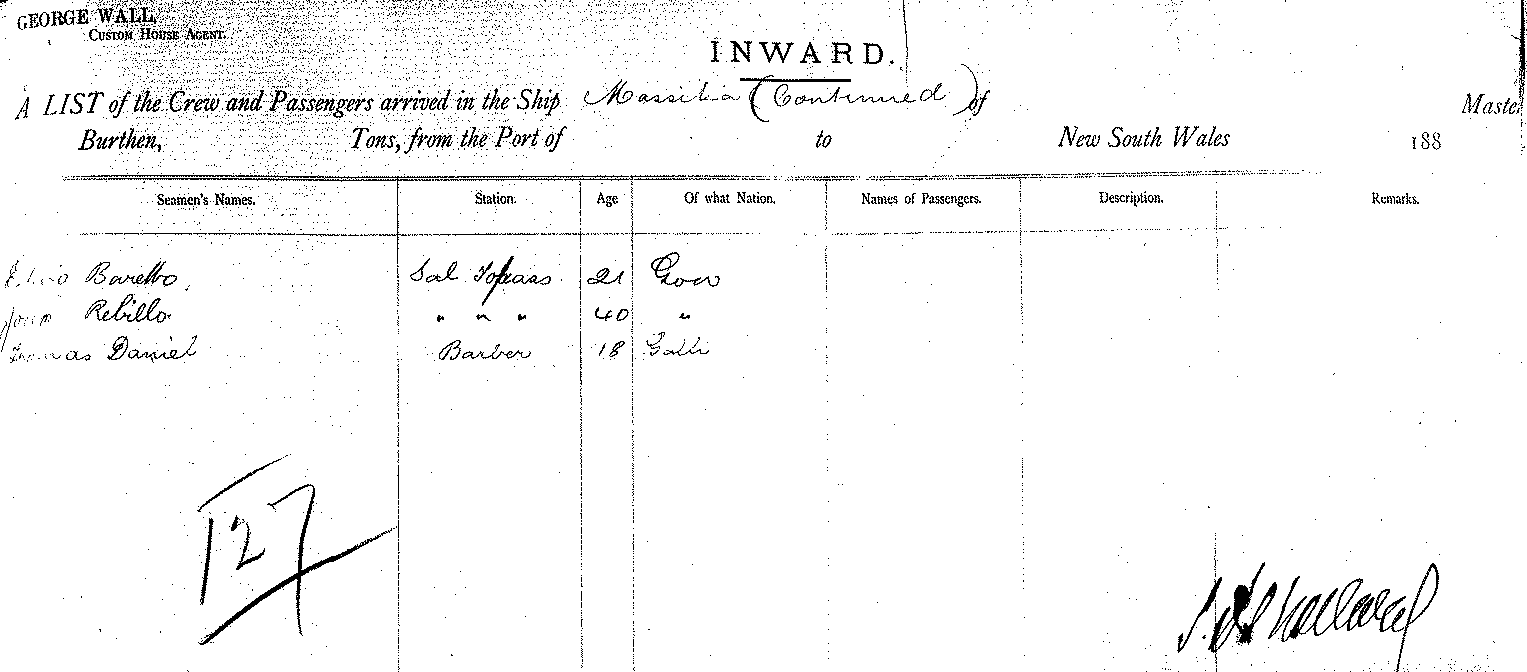 GEORGE WALL,
CUSTOM HOUSE AGENT.
INWARD.
A LIST of the Crew and Passengers arrived in the Ship Massilia (Continued) of Master
Burthen, Tons, from the Port of to New South Wales 188
Seamen's Names. Station. Age Of what Nation. Names of Passengers. Description. Remarks.
Baretto Sal Topass 21 Goa
John Rebillo " " " 40 "
Thomas Daniel Barber 18 Galle
127